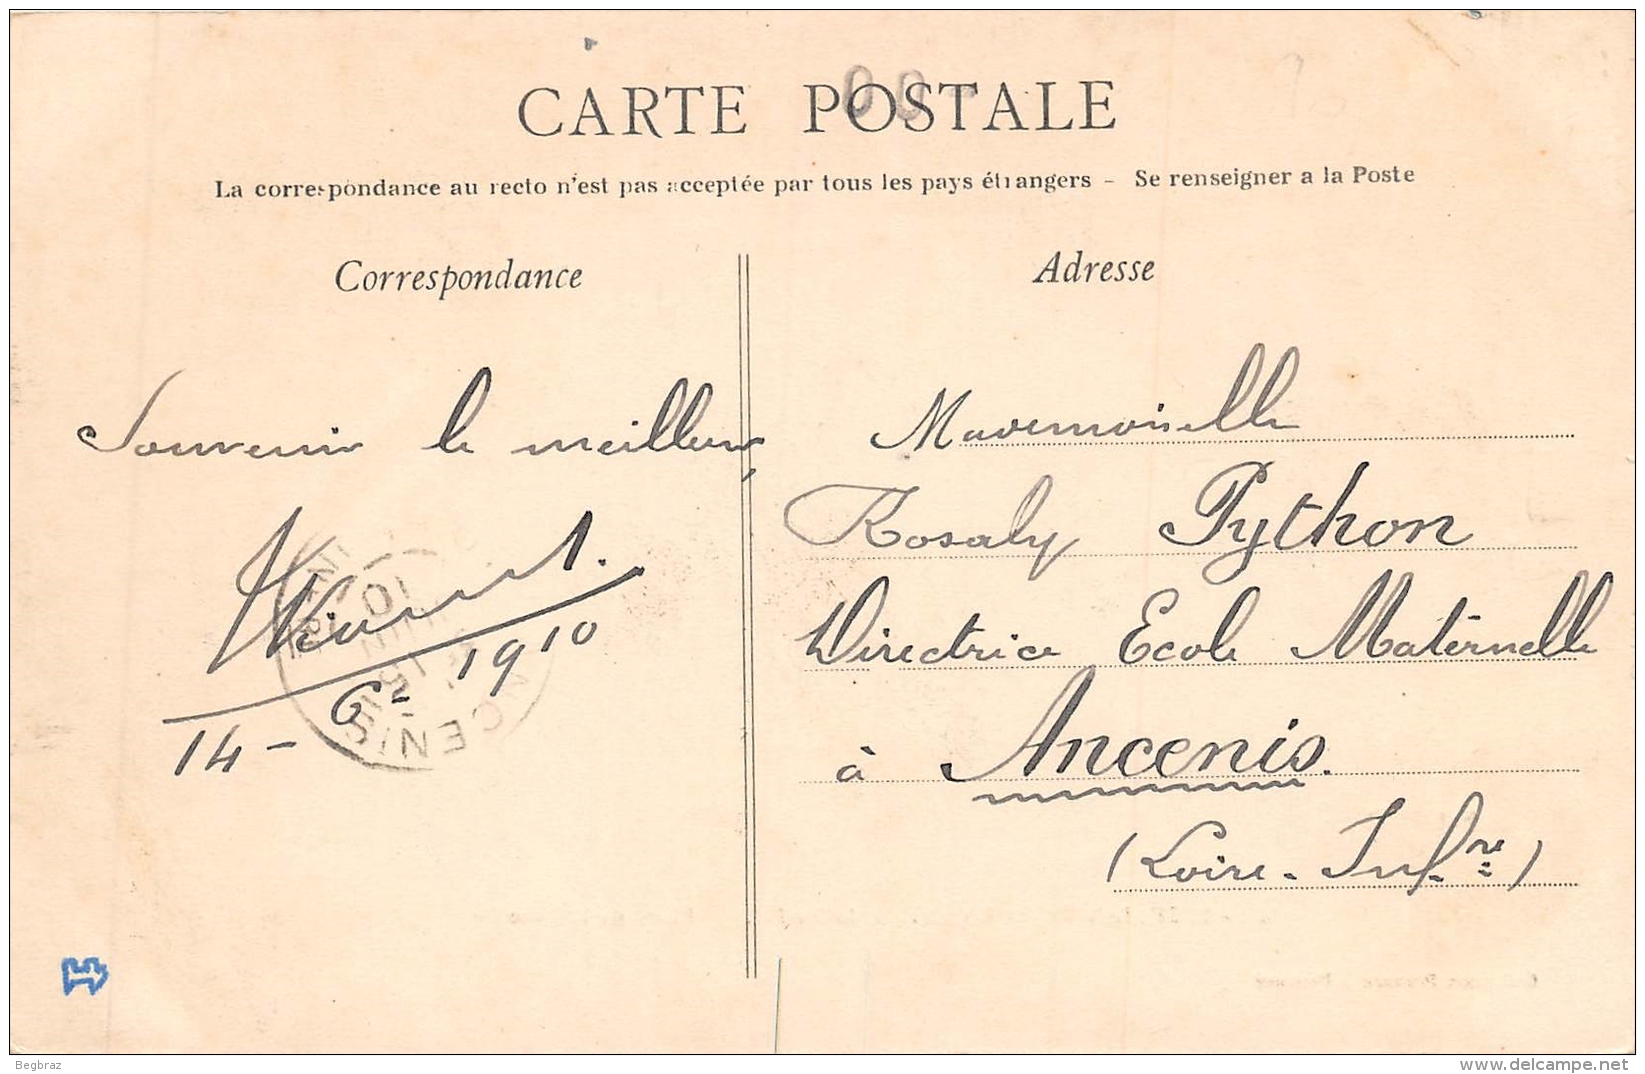 CARTE POSTALE
La correspondance au recto n'est pas acceptée par tous les pays étrangers - Se renseigner a la Poste
Correspondance
Souvenir le meilleur,
14-6-1910
Adresse
Mademoiselle
Rosaly Python
Directrice Ecole Maternelle
à Ancenis.
(Loire-Inf.re)
ANCENIS
Begbraz
www.delcampe.net